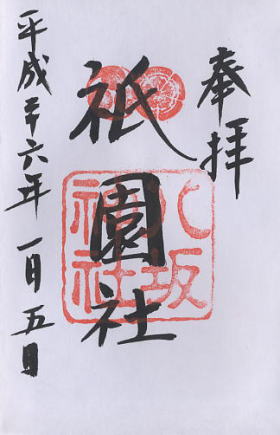 奉拝
祇園社
八坂神社
平成二十六年一月五日